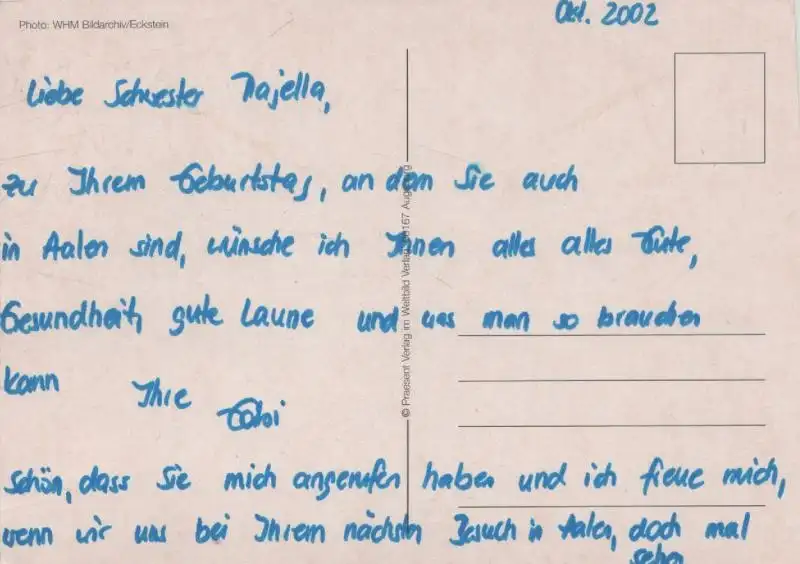 Photo: WHM Bildarchiv/Eckstein
Okt. 2002
Liebe Schwester Najella,
zu Ihrem Geburtstag, an dem Sie auch
in Aalen sind, wünsche ich Ihnen alles alles Gute,
Gesundheit, gute Laune und was man so brauchen
kann
Ihre
Gabi
Schön, dass Sie mich angerufen haben und ich freue mich,
wenn wir uns bei Ihrem nächsten Besuch in Aalen, doch mal
sehen
© Praesent Verlag im Weltbild Verlag, Augsburg